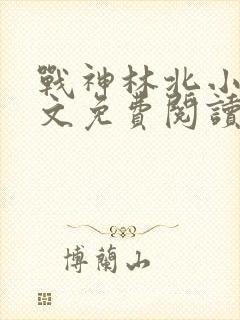 戰神林北小
文免費閱讀
博蘭山